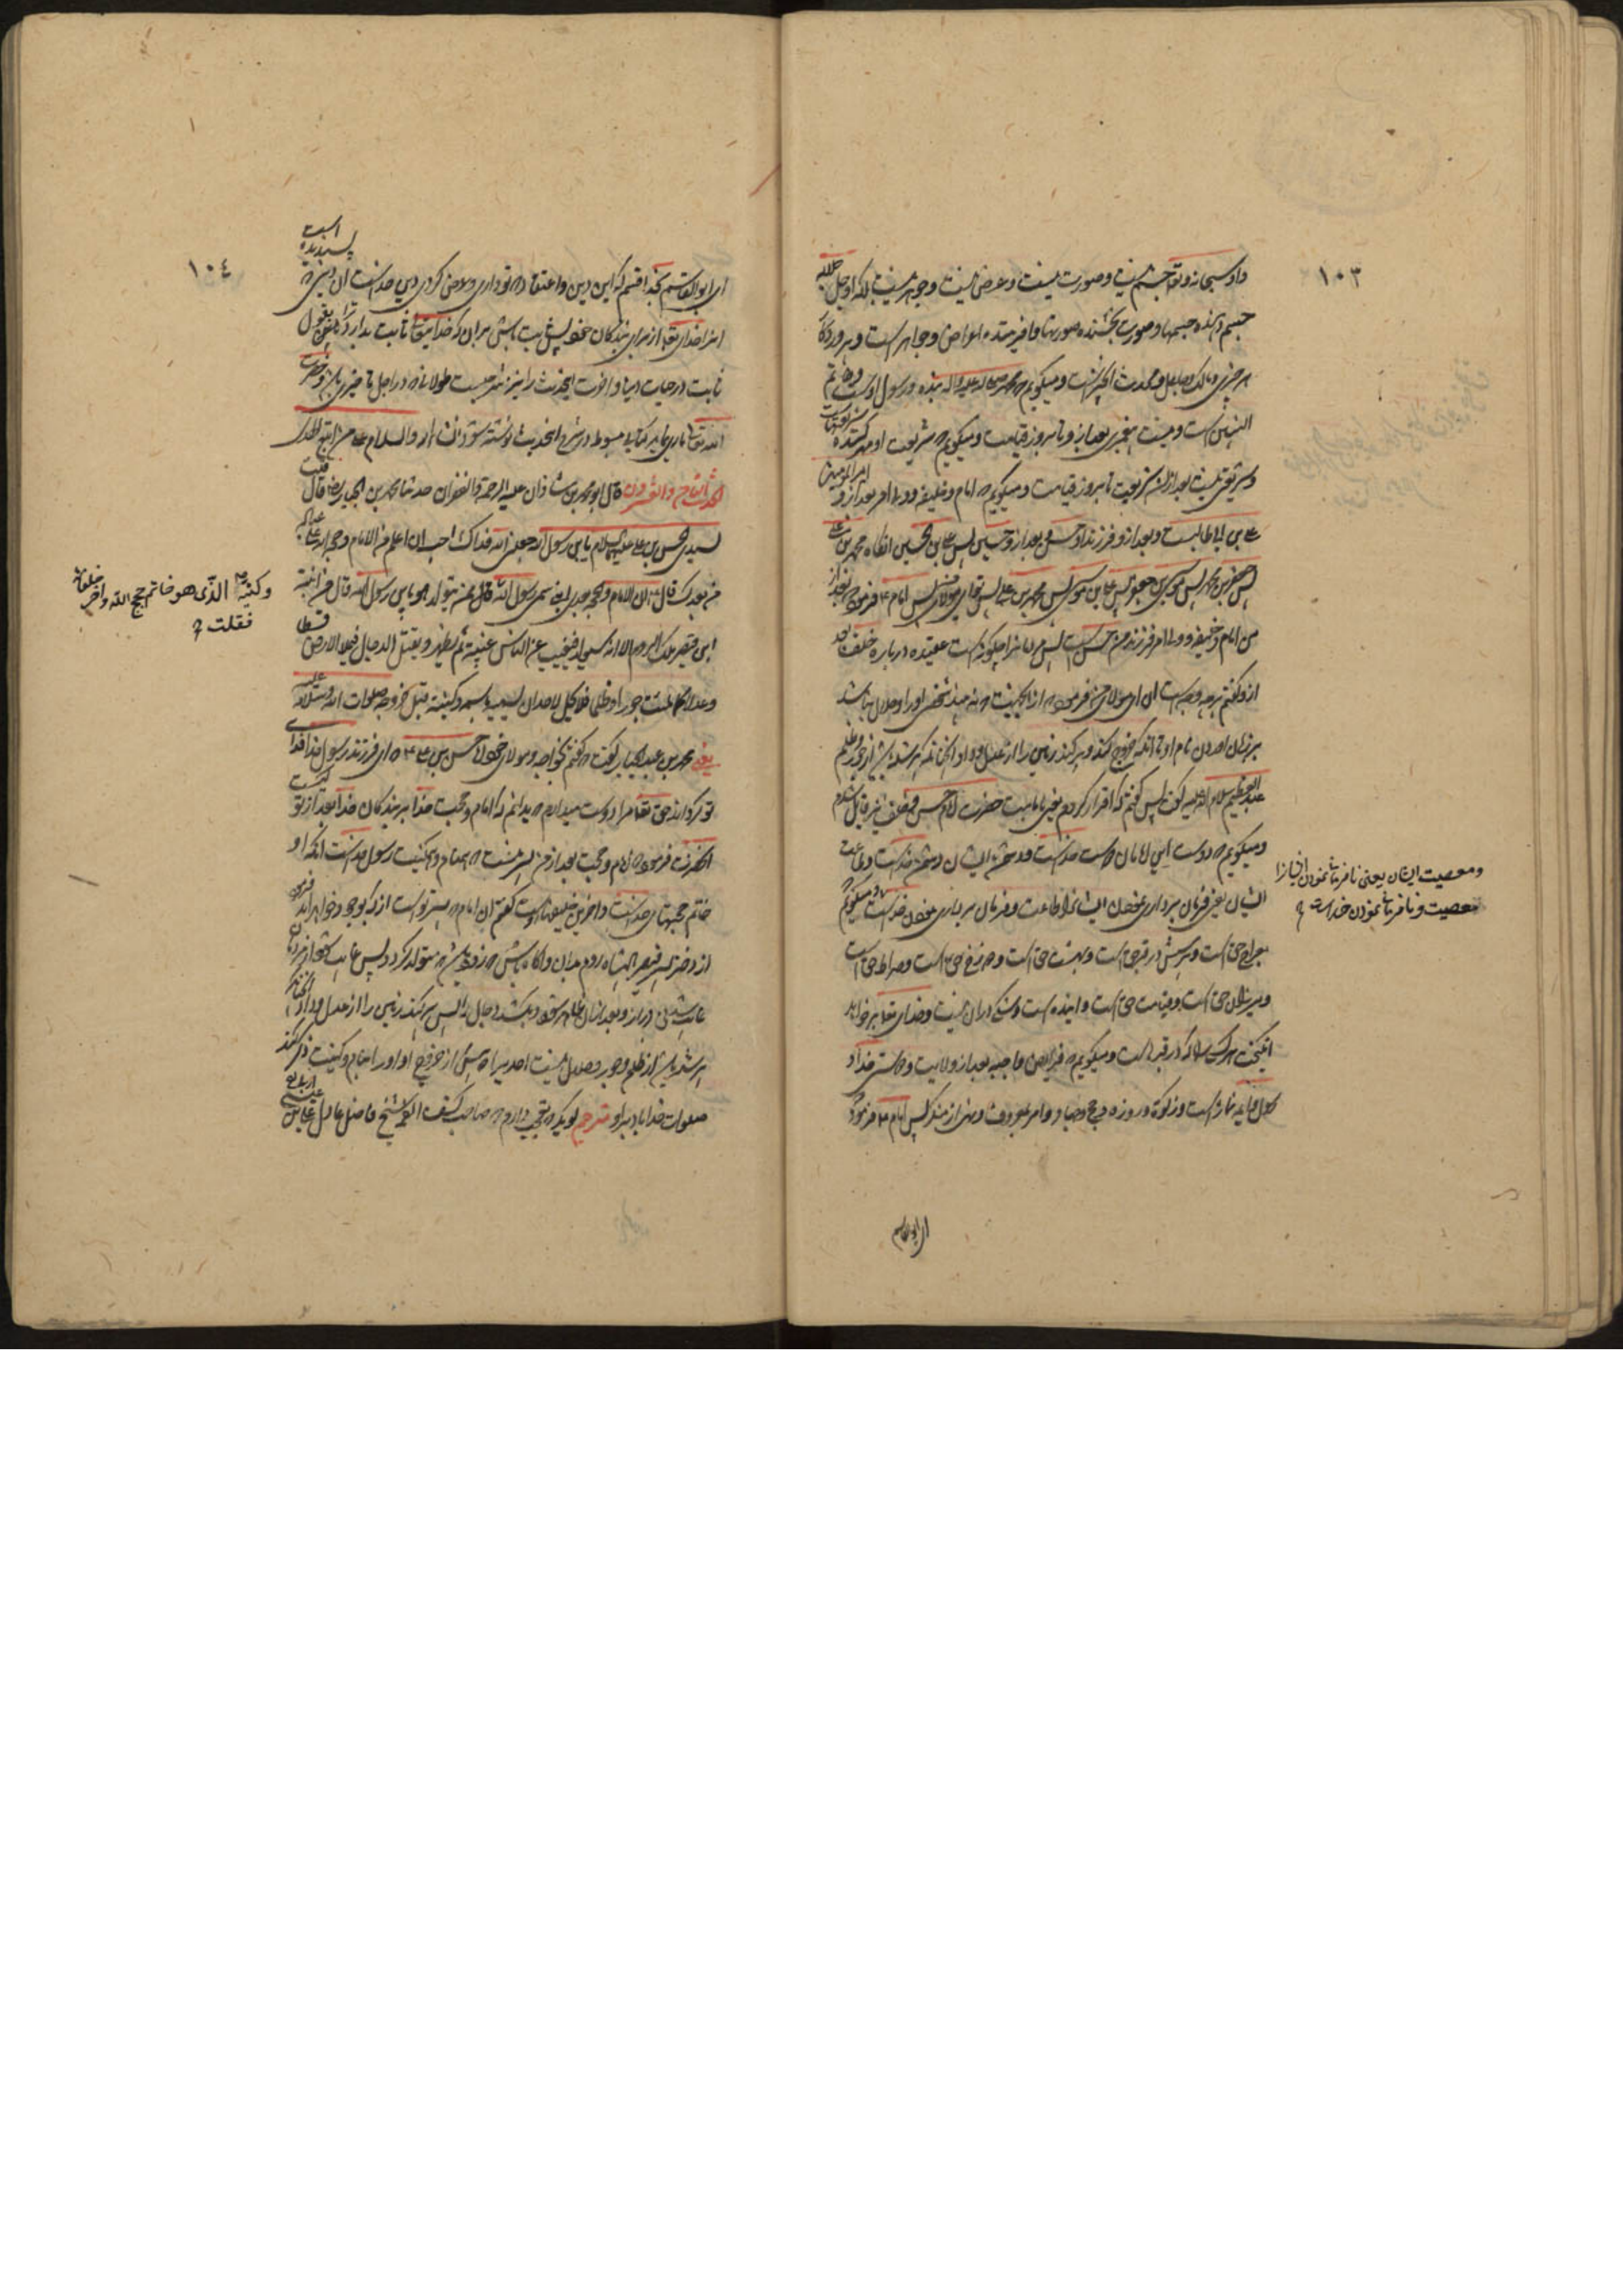 ١٠٣
و او سبحانه و تعالی جسم نیست و صورت نیست و عرض نیست و جوهر نیست بلکه او جل جلاله
جسم دهنده جسمها و صورت بخشنده صورتها و آفریننده اعراض و جواهر است و پروردگار
هر چیزی و مالک و جاعل و محدث آن چیز است و میگویم که محمد صلی الله علیه و اله بنده و رسول اوست و خاتم
النبیین است و نیست پیغمبری بعد از و تا بروز قیامت و میگویم که شریعت او مهر کننده شریعتهاست
و شریعتی نیست بعد از آن شریعت تا بروز قیامت و میگویم که امام و خلیفه و ولی امر بعد از و امیر المؤمنین
علی بن ابی طالبست و بعد از و فرزند او حسن و بعد از و حسین پس علی بن الحسین آنگاه محمد بن علی
پس جعفر بن محمد پس موسی بن جعفر پس علی بن موسی پس محمد بن علی پس توئی ای مولای من پس امام ع فرمود که بعد از
من امام و خلیفه و ولی امر فرزند من حسن است پس مردمانرا چگونه است عقیده درباره خلف بعد
از و گفتم بر چه وجه است آن ای مولای من فرمود که از آن جهت که نه بیند شخص او را و حلال نباشد
بر زبان آوردن نام او تا آنکه خروج کند و پر کند زمین را از عدل و داد آنچنانکه پر شده باشد از جور و ظلم
عبد العظیم سلام الله علیه گفت پس گفتم که اقرار کردم یعنی بامامت حضرت امام حسن و خلف نیز قایل شدم
و میگویم که دوست این امامان دوست خداست و دشمن ایشان دشمن خداست و طاعت
ایشان یعنی فرمان برداری نمودن ایشانرا طاعت و فرمان برداری نمودن خداست و میگویم که
معراج حق است و پرسش در قبر حق است و بهشت حق است و دوزخ حق است و صراط حق است
و میزان حق است و قیامت حق است و آینده است و شکی در آن نیست و خدای تعالی بر خواهد
انگیخت هر کس را که در قبر است و میگویم که فرایض واجبه بعد از ولایت و دوستی خدا و
رسول و ائمه نماز است و زکوة و روزه و حج و جهاد و امر بمعروف و نهی از منکر پس امام ع فرمود که
و معصیت ایشان یعنی نافرمانی نمودن ایشانرا
معصیت و نافرمانی نمودن خداست
ای ابو القاسم
١٠٤
ای ابو القاسم بخدا قسم که این دین و اعتقاد که تو داری و عرض کردی دین خداست آن دینی که پسندیده است
آنرا خدای تعالی از برای بندگان خود پس ثابت باش بر آن که خدایتعالی ثابت بدارد ترا بقول
ثابت در حیات دنیا و آخرت این حدیث را نیز شرحیست طولانی که در اجل تاخیری باشد و حضرت
الله تعالی یاری نماید کتابی مبسوط در شرح این حدیث نوشته شود ان شاء الله و السلام علی من اتبع الهدی
الحدیث التاسع و العشرون قال ابو محمد بن شاذان علیه الرحمة و الغفران حدثنا محمد بن عبد الجبار رض قال قلت
لسیدی الحسن بن علی علیه السلام یا بن رسول الله جعلنی الله فداک احب ان اعلم من الامام و حجة الله علی عباده
من بعدک قال ع ان الامام و الحجة بعدی ابنی سمی رسول الله قال ممن یتولد هو یا بن رسول الله قال من ابنة
ابن قیصر ملک الروم الا انه سیولد فیغیب عن الناس غیبة ثم یظهر و یقتل الدجال فیملا الارض قسطا
و عدلا کما ملئت جورا و ظلما فلا یحل لاحد ان یسمیه باسمه و کنیته قبل خروجه صلوات الله و سلامه علیه
یعنی محمد بن عبد الجبار گفت که گفتم بخواجه و مولای خود حسن بن علی ع که ای فرزند رسول خدا فدای
تو گرداند حق تعالی مرا دوست میدارم که بدانم که امام و حجت خدا بر بندگان خدا بعد از تو کیست
آنحضرت فرمود که امام و حجت بعد از من پسر منست که همنام و هم کنیت رسول خداست آنکه او
خاتم حجتهای خداست و آخرین خلیفهای اوست گفتم آن امام که پسر تو است از که بوجود خواهد آمد فرمود
از دختر پسر قیصر پادشاه روم بدان و آگاه باش که زود باشد که متولد گردد پس غایب شود از مردمان
غایب شدنی دراز و بعد از آن ظاهر شود و بکشد دجال را پس پر کند زمین را از عدل و داد آنچنانکه
پر شده باشد از ظلم و جور و حلال نیست احدیرا که پیش از خروج او او را بنام و کنیت ذکر کند
صلوات خدا باد بر او مترجم گوید که تعجب دارم که صاحب کشف الغمه شیخ فاضل عادل علی بن عیسی اربلی
و کنیه الذی هو خاتم حجج الله و آخر خلفائه
فقلت